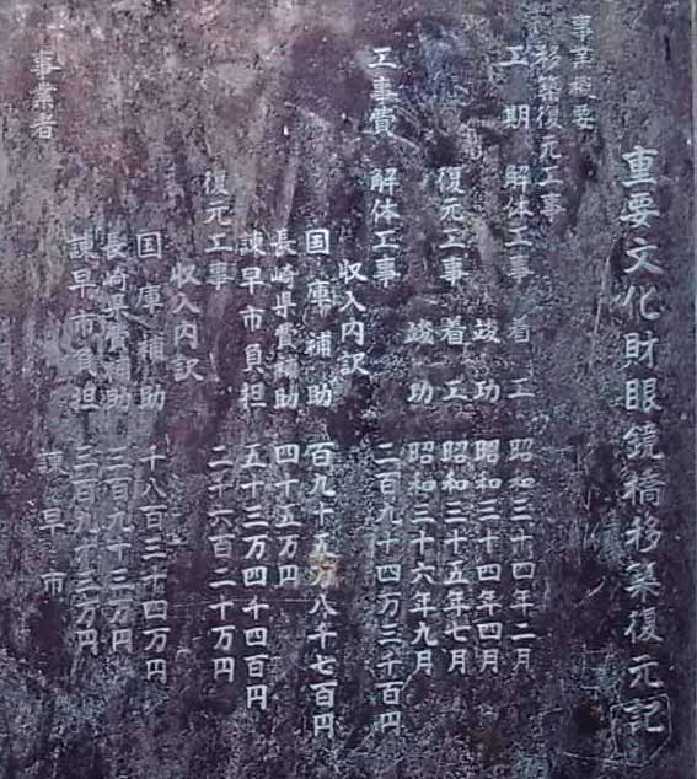 重要文化財眼鏡橋移築復元記
事業概要
移築復元工事
工期 解体工事 着工 昭和三十四年二月
竣功 昭和三十四年四月
復元工事 着工 昭和三十五年七月
竣功 昭和三十六年九月
工事費 解体工事 二百九十四万三千百円
収入内訳
国庫補助 百九十五万八千七百円
長崎県費補助 四十五万円
諫早市負担 五十三万四千四百円
復元工事 二千六百二十万円
収入内訳
国庫補助 千八百三十四万円
長崎県費補助 三百九十三万円
諫早市負担 三百九十三万円
事業者 諫早市